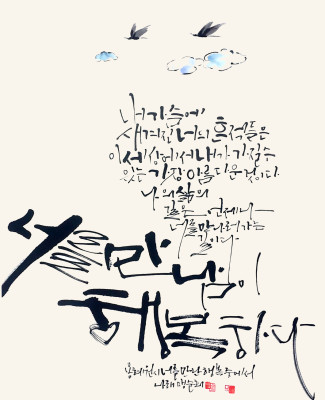 내 가슴에
새겨진 너의 흔적들은
이 세상에서 내가 가질 수
있는 가장 아름다운 것이다.
나의 삶의
길은 언제나
너를 만나러 가는
길이다.
만남이
행복하다
용혜원 시 너를 만난 행복 중에서